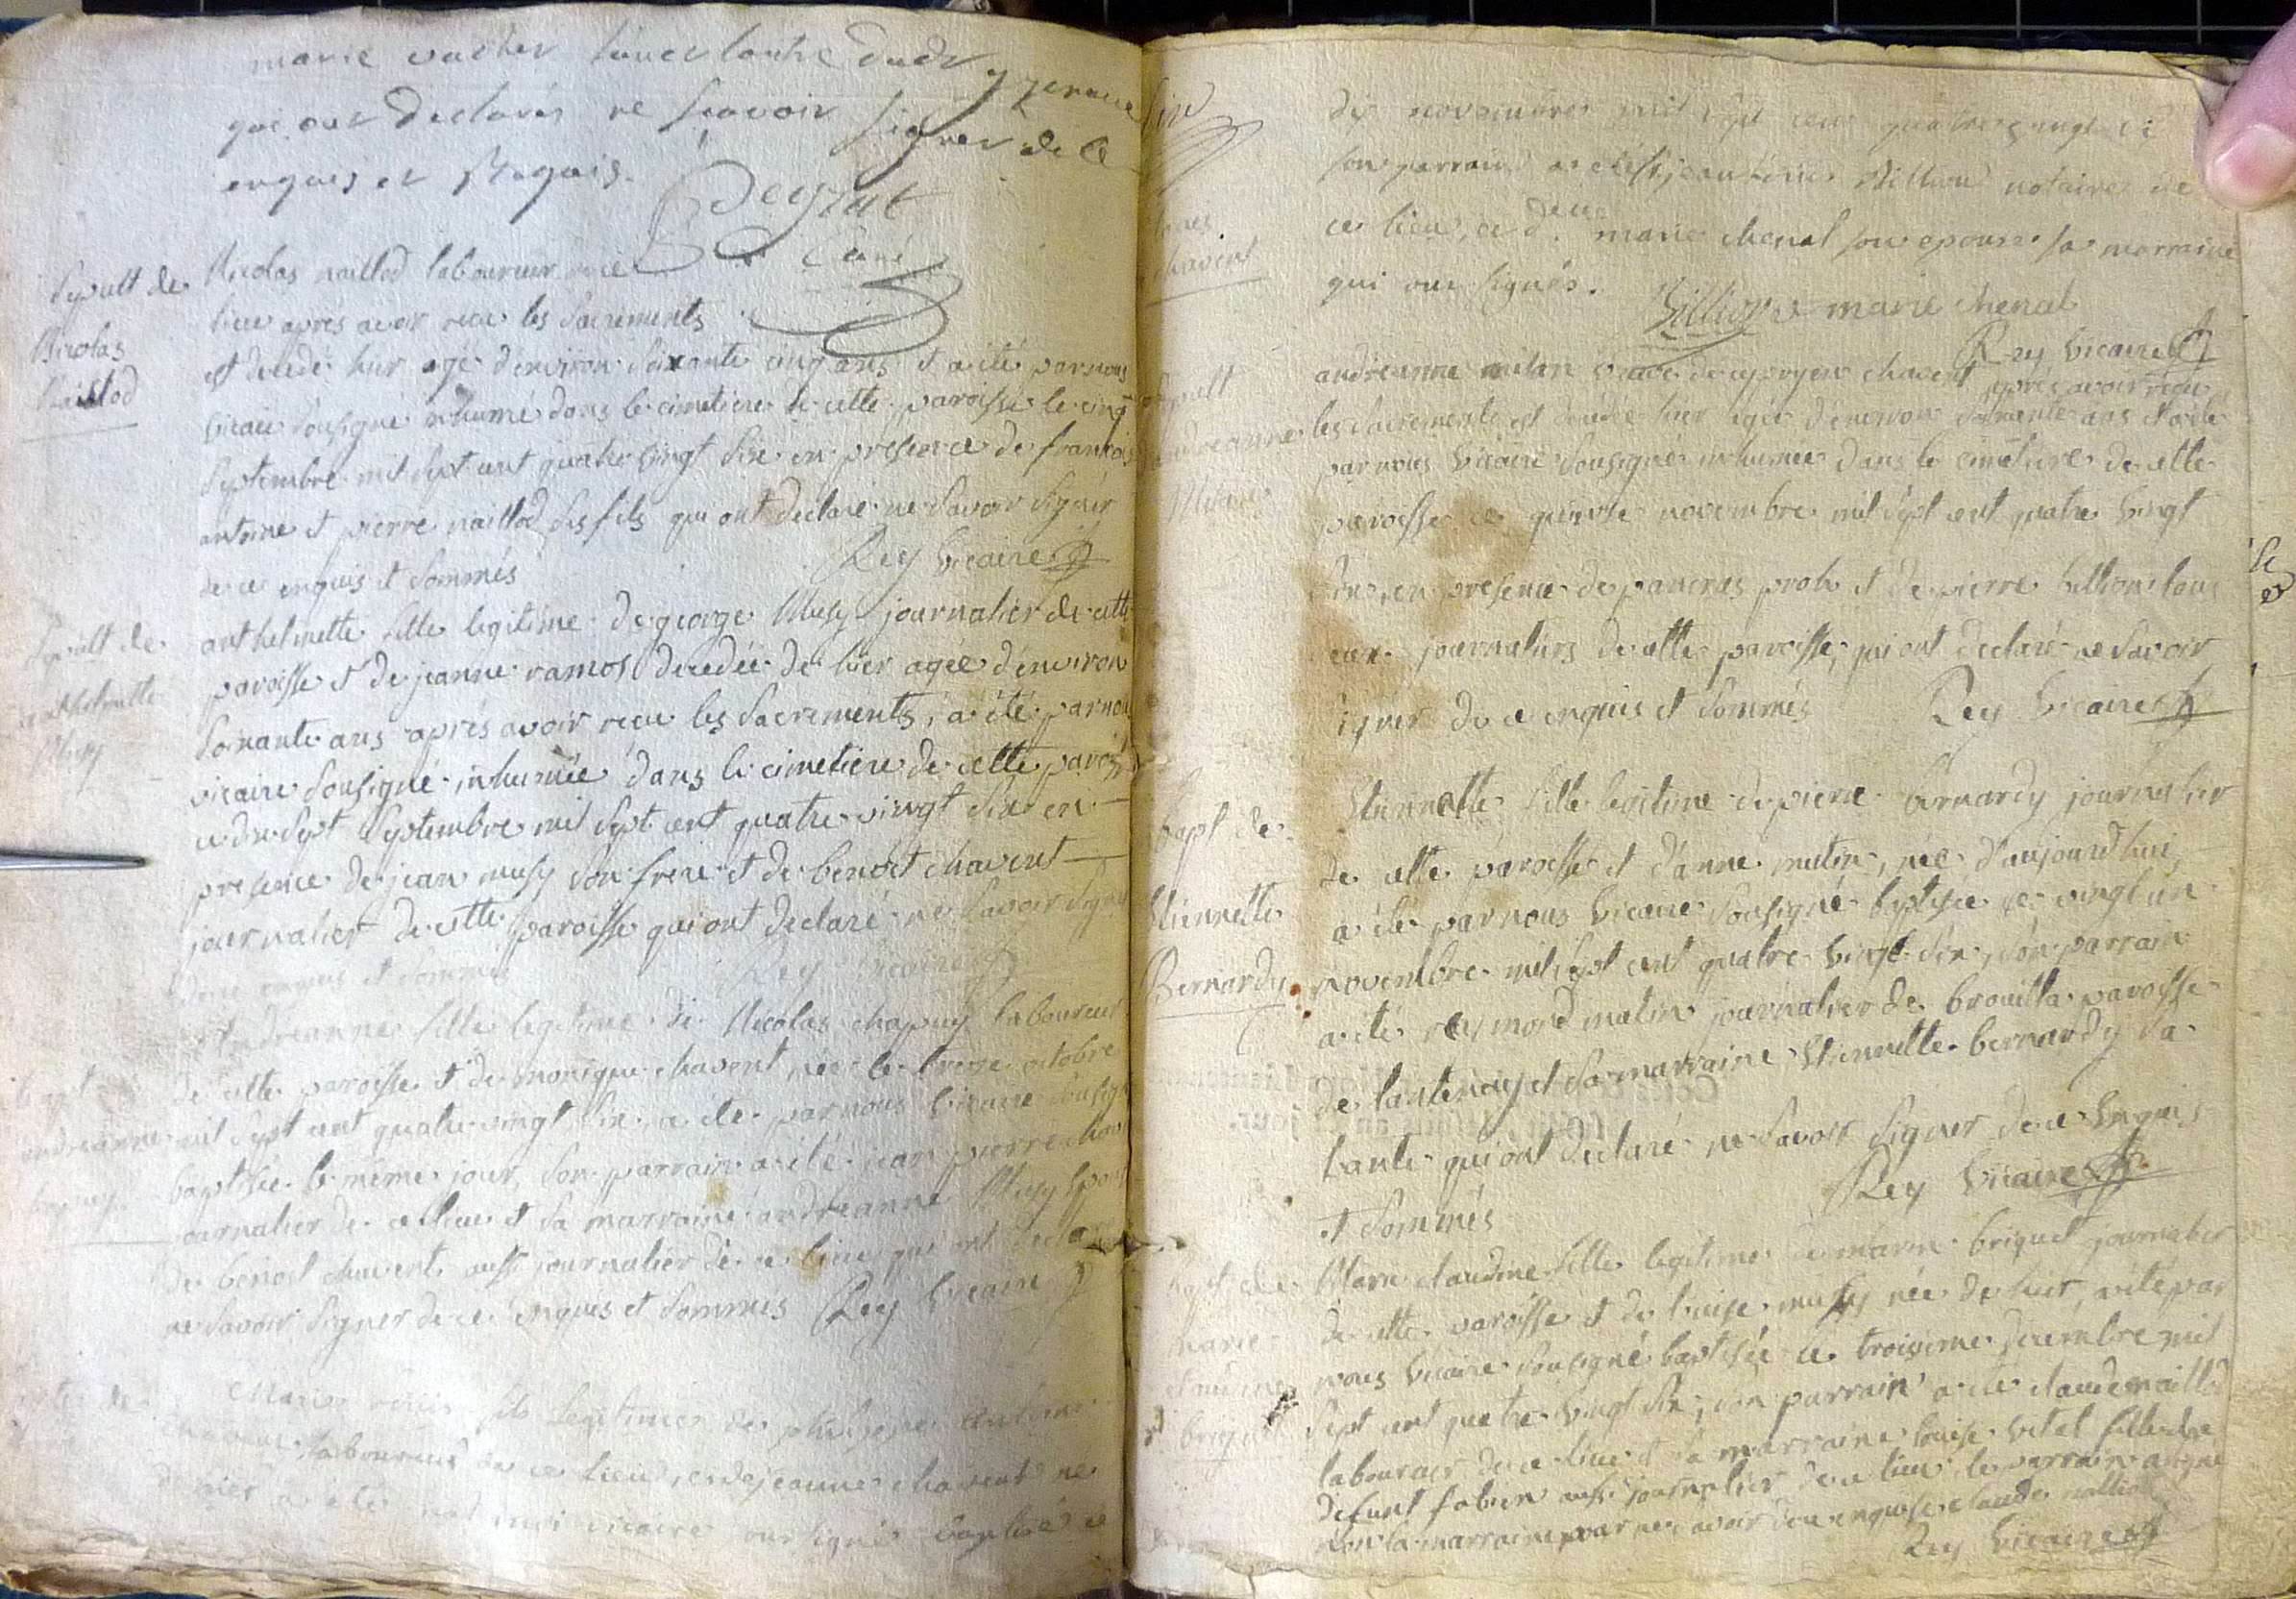 marie vacher l'un et l'autre dudt yzeraud
qui ont declarés ne sçavoir signer de ce
enquis et Requis.
Deyrat
Curé
Sepult de
Nicolas
Naillod
Nicolas naillod laboureur de ce
lieu apres avoir reçu les Sacrements
est decedé hier agé d'environ Soixante cinq ans et a été par nous
vicaire Sousigné inhumé dans le cimetiere de cette paroisse le cinq
Septembre mil Sept cent quatre vingt Six en presence de francois
antoine et pierre naillod ses fils qui ont declaré ne Savoir Signer
de ce enquis et Sommés
Rey Vicaire
Sepult de
anthelmette
Musy
anthelmette fille legitime de george Musy journalier de cette
paroisse et de jeanne ramos decedée de hier agée d'environ
Soixante ans après avoir reçu les Sacrements, a été par nous
vicaire Sousigné inhumée dans le cimetiere de cette paroisse
ce dix Sept Septembre mil Sept cent quatre vingt Six en
presence de jean musy Son frere et de benoît chavent
journalier de cette paroisse qui ont declaré ne Savoir Signer
de ce enquis et Sommés
Rey Vicaire
Bapt
andreanne
chapuy
andreanne fille legitime de Nicolas chapuy laboureur
de cette paroisse et de monique chavent, née le treize octobre
mil Sept cent quatre vingt Six, a été par nous Vicaire Sousigné
baptisée le même jour, Son parrain a été jean pierre
journalier de ce lieu et Sa marraine andreanne Musy
de benoit chavent aussi journalier de ce lieu qui ont declaré
ne Savoir Signer de ce enquis et Sommés Rey Vicaire
fils legitime de
laboureur de ce lieu, et de jeanne chavent né
d'hier a été par moi vicaire soussigné baptisé ce
dix novembre mil sept cent quatre vingt six
son parrain a été Sr jean Billion notaire de
ce lieu, et delle marie chenal son epouse sa marraine
qui ont signés.
Billion marie chenal
Rey Vicaire
Sepult
andreanne
Milan
andreanne milan veuve de chavent après avoir reçu
les Sacrements est decedée hier agée d'environ Soixante ans et a été
par nous Vicaire Sousigné inhumée dans le cimetiere de cette
paroisse ce quinze novembre mil Sept cent quatre vingt
Six, en presence de pancras prost et de pierre billion tous
deux journaliers de cette paroisse, qui ont declaré ne Savoir
Signer de ce enquis et Sommés Rey Vicaire
bapt de
Etiennette
Bernardy
Etiennette fille legitime de pierre bernardy journalier
de cette paroisse et d'anne matin, née d'aujourd'hui,
a été par nous Vicaire Sousigné baptisée ce vingt un
novembre mil Sept cent quatre Vingt Six, Son parrain
a été reymond matin journalier de brouilla paroisse
de lantenay et Sa marraine Etiennette bernardy Sa
tante qui ont declaré ne Savoir Signer de ce Enquis
et Sommés
Rey Vicaire
bapt de
marie
claudine
briquet
Marie claudine fille legitime de marin briquet journalier
de cette paroisse et de louise musy née de hier, a été par
nous Vicaire Sousigné baptisée ce troisieme decembre mil
Sept cent quatre vingt Six, son parrain a été claude naillod
laboureur de ce lieu et Sa marraine louise vital fille de
defunt fabien aussi journalier de ce lieu le parrain a signé
non la marraine pour ne Savoir de ce enquise claude nallod
Rey Vicaire